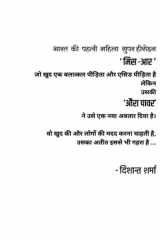 भारत की पहली महिला सुपरहीरोइन
"मिस -आर "
जो खुद एक बलात्कार पीड़िता और एसिड पीड़िता है
लेकिन
उसकी
'औरा पावर'
ने उसे एक नया अवतार दिया है।
वो खुद की और लोगों की मदद करना चाहती है,
उसका अतीत इससे भी गहरा है ...
- दिशान्त शर्मा